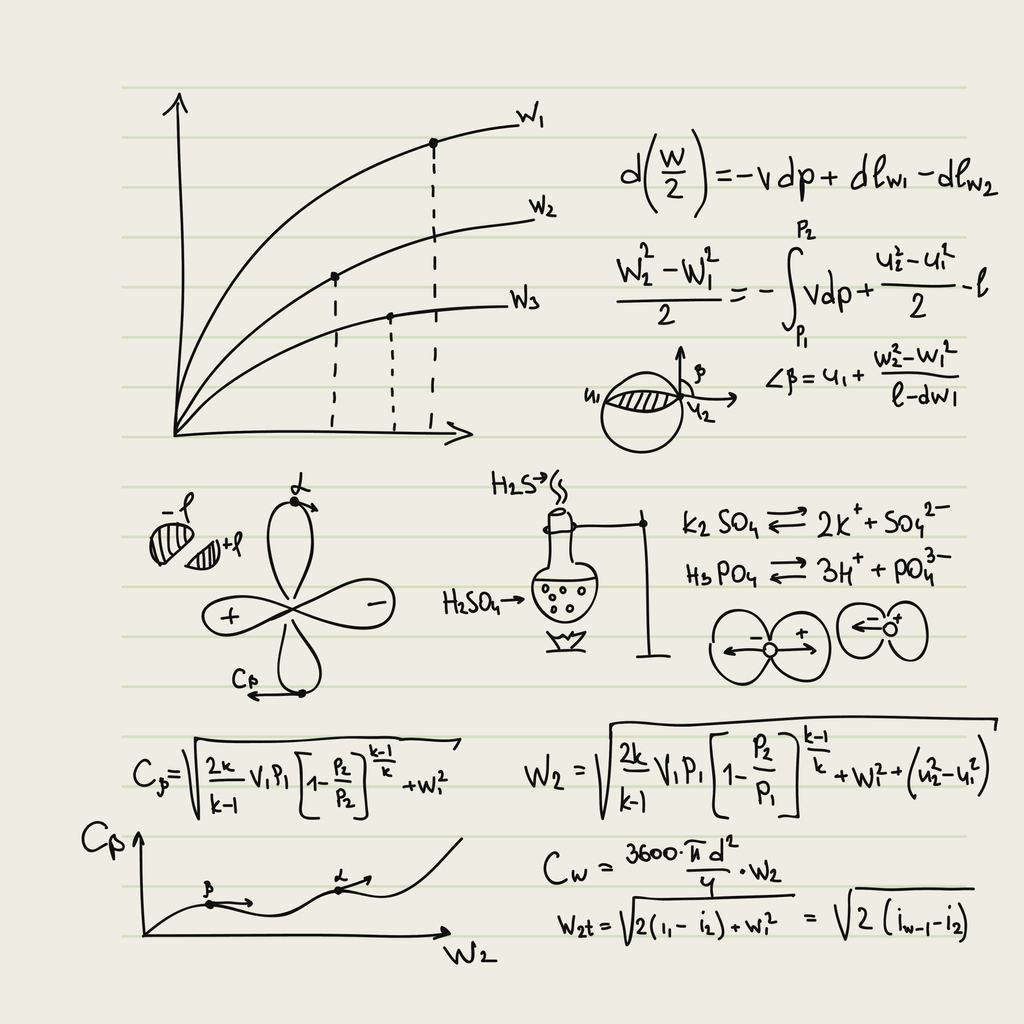 W1
W2
W3
d(W/2) = -vdp + dlw1 - dlw2
(W2² - W1²)/2 = -∫P1P2 vdp + (u2² - u1²)/2 - l
∠β = u1 + (w2² - w1²)/(l - dw1)
β
u2
- l
+l
α
+
−
Cβ
H2S→
H2SO4→
K2SO4 ⇄ 2K⁺ + SO4²⁻
H3PO4 ⇄ 3H⁺ + PO4³⁻
− +
− +
Cβ = √(2k/(k-1) V1P1 [1 - P2/P2]^((k-1)/k) + w1²
W2 = √(2k/(k-1) V1P1 [1 - P2/P1]^((k-1)/k) + w1² + (u2² - u1²)
Cβ
β
α
W2
Cw = 3600·πd²/4 · w2
W2t = √2(i1 - i2) + w1² = √2(iw-1 - i2)